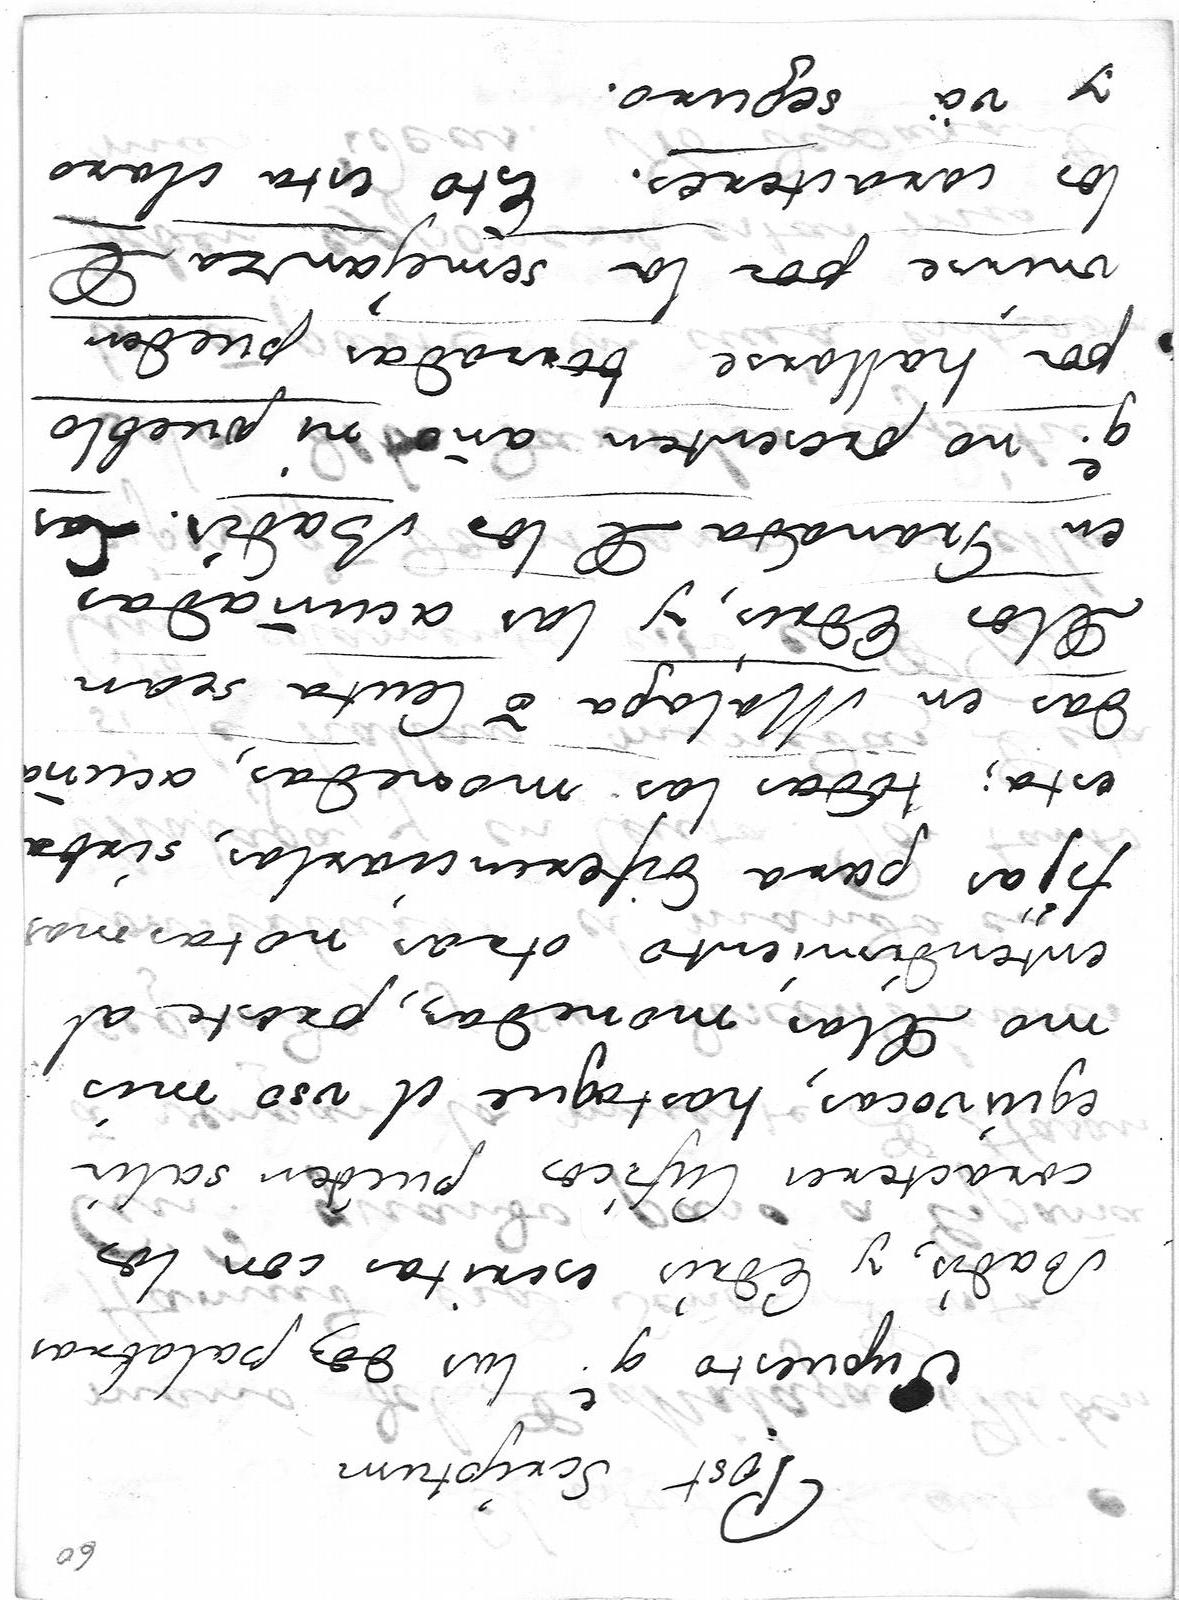 60
Post Scriptum
Supuesto q.e las dos palabras
Badis, y Edris escritas con los
caracteres Cuficos pueden salir
equivocas, hastaque el uso mis
mo de las monedas, preste al
entendimiento otras notas mas
fijas para diferenciarlas, sirba
esta; todas las monedas, acuña
das en Malaga ò Ceuta sean
de los Edris, y las acuñadas
en Granada de los Badis. Las
q.e no presenten año ni pueblo
por hallarse borradas pueden
unirse por la semejanza de
los caracteres. Esto esta claro
y và seguro.